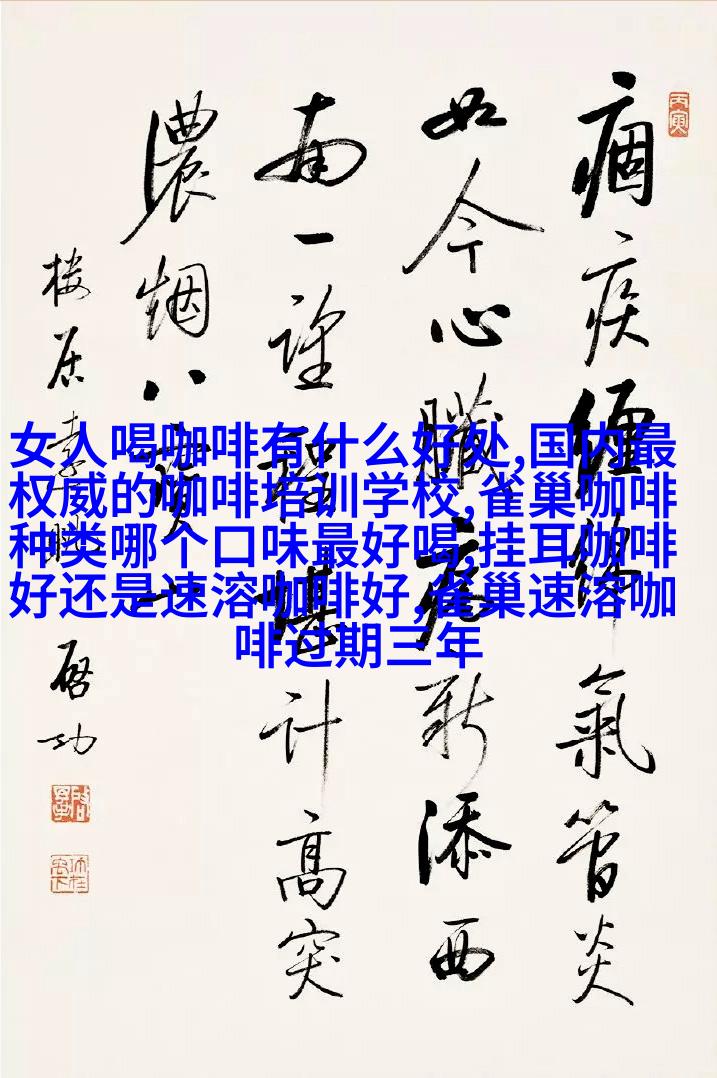 丙寅
痼疾纏綿氣管炎
如今心臟新添西
南一望堪計高突
濃烟八寶山
樓居 啓功
女人喝咖啡有什么好处,国内最
权威的咖啡培训学校,雀巢咖啡
种类哪个口味最好喝,挂耳咖啡
好还是速溶咖啡好,雀巢速溶咖
啡过期三年